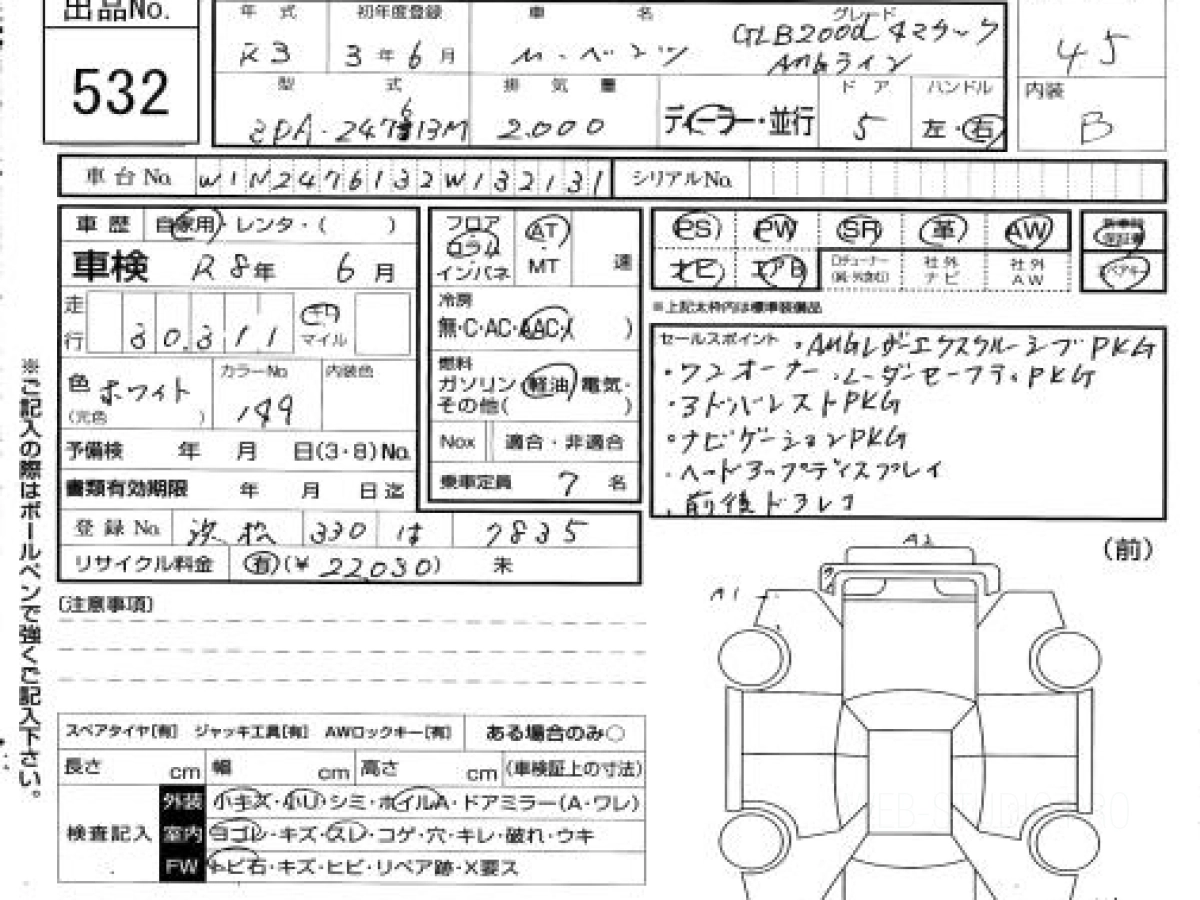 出品No.
532
年式 初年度登録 車名 グレード
R3 3年6月 M・ベンツ GLB200d 4マチック
AMGライン
45
型式 排気量 ドア ハンドル 内装
3DA-247613M 2.000 ディーラー・並行 5 左・右 B
車台No. W1N2476132W132131 シリアルNo.
車歴 自家用・レンタ・( )
車検 R8年 6月
走行 30,311 キロ マイル
色 ホワイト (元色 ) カラーNo 149 内装色
予備検 年 月 日(3・8)No.
書類有効期限 年 月 日迄
登録No. 浜松 330 は 7835
リサイクル料金 有(¥ 22,030) 未
フロア コラム インパネ AT MT 速
冷房
無・C・AC・AAC・( )
燃料
ガソリン・軽油・電気・
その他( )
Nox 適合・非適合
乗車定員 7名
PS PW SR 革 AW 新車時保証書
ナビ エアB Dチューナー(純・外含む) 社外ナビ 社外AW スペアキー
※上記太枠内は標準装備品
セールスポイント ・AMGレザーエクスクルーシブPKG
・ワンオーナー ・レーダーセーフティPKG
・アドバンストPKG
・ナビゲーションPKG
・ヘッドアップディスプレイ
・前後ドラレコ
(前)
A2
A1
〔注意事項〕
スペアタイヤ[有] ジャッキ工具[有] AWロックキー[有] ある場合のみ○
長さ cm 幅 cm 高さ cm (車検証上の寸法)
検査記入
外装 小キズ・小U・シミ・ホイルA・ドアミラー(A・ワレ)
室内 ヨゴレ・キズ・スレ・コゲ・穴・キレ・破れ・ウキ
FW トビ石・キズ・ヒビ・リペア跡・X要ス
※ご記入の際はボールペンで強くご記入下さい。